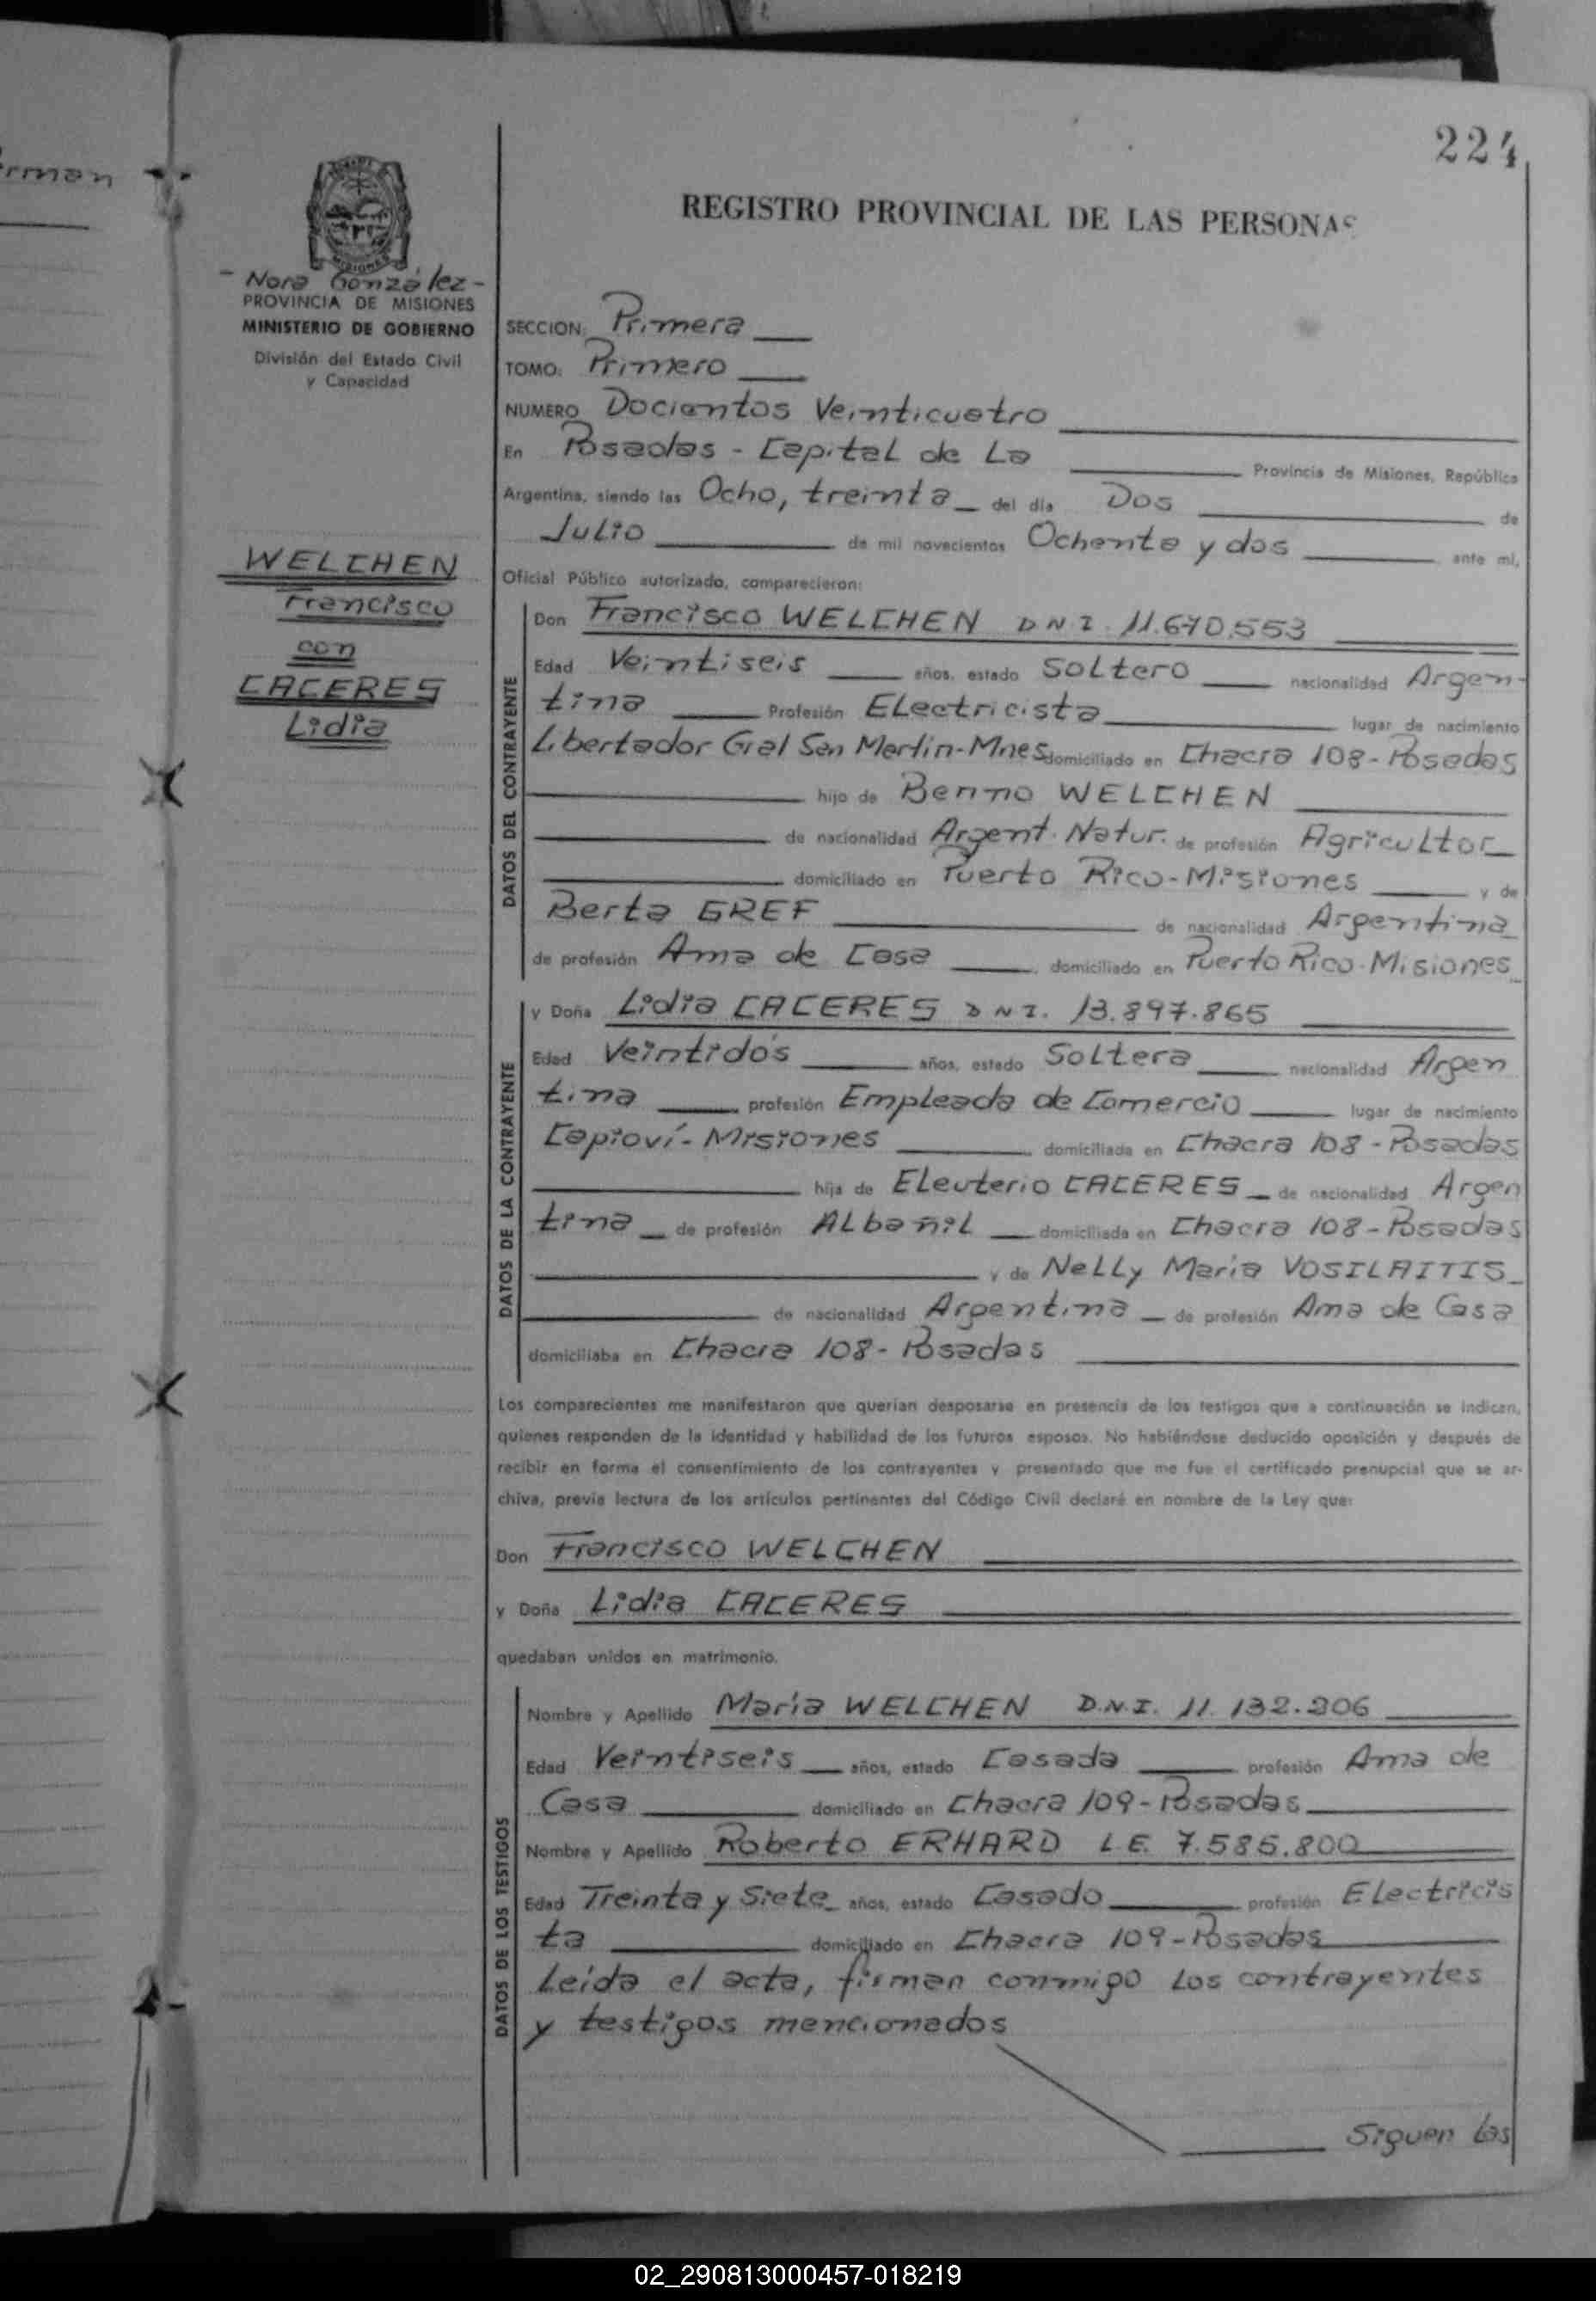 rman
224
REGISTRO PROVINCIAL DE LAS PERSONAS
MISIONES
- Nora González -
PROVINCIA DE MISIONES
MINISTERIO DE GOBIERNO
División del Estado Civil
y Capacidad
SECCION: Primera
TOMO: Primero
NUMERO Docientos Veinticuatro
En Posadas - Capital de La Provincia de Misiones, República
Argentina, siendo las Ocho, treinta del día Dos de
Julio de mil novecientos Ochenta y dos ante mi,
Oficial Público autorizado, comparecieron:
WELCHEN
Francisco
con
CACERES
Lidia
DATOS DEL CONTRAYENTE
Don Francisco WELCHEN D N I. 11.670.553
Edad Veintiseis años, estado Soltero nacionalidad Argen-
tina Profesión Electricista lugar de nacimiento
Libertador Gral San Martin-Mnes domiciliado en Chacra 108-Posadas
hijo de Benno WELCHEN
de nacionalidad Argent. Natur. de profesión Agricultor
domiciliado en Puerto Rico-Misiones y de
Berta GREF de nacionalidad Argentina
de profesión Ama de Casa domiciliado en Puerto Rico-Misiones
DATOS DE LA CONTRAYENTE
y Doña Lidia CACERES D N I. 13.897.865
Edad Veintidós años, estado Soltera nacionalidad Argen
tina profesión Empleada de Comercio lugar de nacimiento
Capioví-Misiones domiciliada en Chacra 108-Posadas
hija de Eleuterio CACERES de nacionalidad Argen
tina de profesión Albañil domiciliada en Chacra 108-Posadas
y de Nelly Maria VOSILAITIS
de nacionalidad Argentina de profesión Ama de Casa
domiciliaba en Chacra 108-Posadas
Los comparecientes me manifestaron que querían desposarse en presencia de los testigos que a continuación se indican,
quienes responden de la identidad y habilidad de los futuros esposos. No habiéndose deducido oposición y después de
recibir en forma el consentimiento de los contrayentes y presentado que me fue el certificado prenupcial que se ar-
chiva, previa lectura de los artículos pertinentes del Código Civil declaré en nombre de la Ley que:
Don Francisco WELCHEN
y Doña Lidia CACERES
quedaban unidos en matrimonio.
DATOS DE LOS TESTIGOS
Nombre y Apellido María WELCHEN D.N.I. 11.132.206
Edad Veintiseis años, estado Casada profesión Ama de
Casa domiciliado en Chacra 109-Posadas
Nombre y Apellido Roberto ERHARD L.E. 7.585.800
Edad Treinta y Siete años, estado Casado profesión Electricis
ta domiciliado en Chacra 109-Posadas
Leida el acta, firman conmigo los contrayentes
y testigos mencionados
Siguen las
02_290813000457-018219